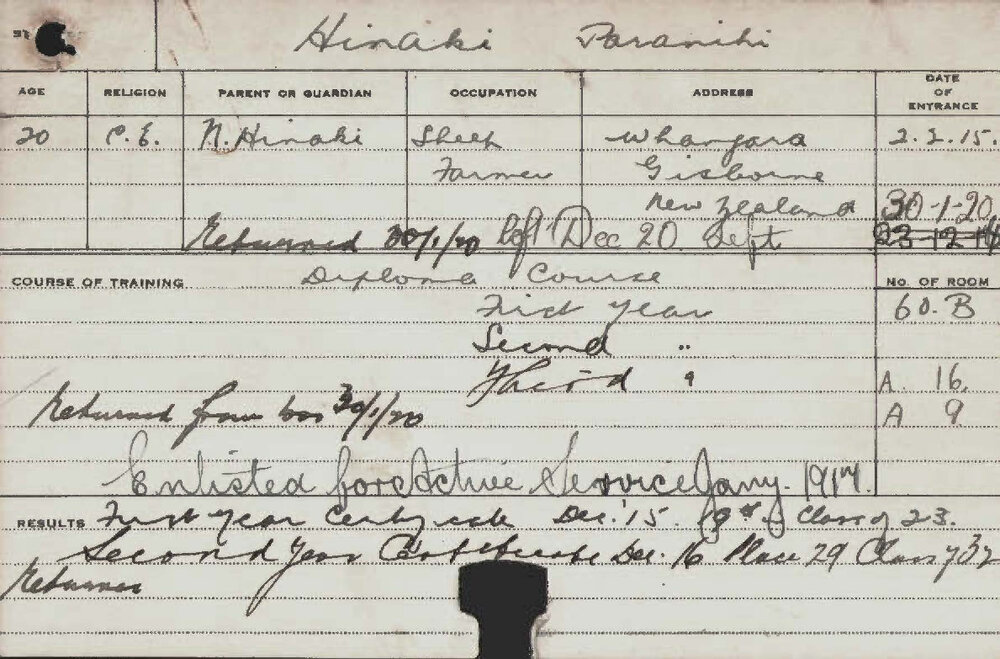 Hinaki Paranihi
AGE RELIGION PARENT OR GUARDIAN OCCUPATION ADDRESS DATE OF ENTRANCE
20 C.E. N. Hinaki Sheep Whangara 2.2.15.
Farmer Gisborne
New Zealand 30-1-20
Returned 30/1/20 left Dec 20. dept 23-12-14
COURSE OF TRAINING Diploma Course No. OF ROOM
First Year 60. B
Second "
Third " A. 16.
Returned from war 30/1/20 A 9
Enlisted for Active Service Jany. 1917.
RESULTS First Year Certificate Dec. '15. Class of 23.
Second Year Certificate Dec. 16 Place 29 Class of 32
Returned